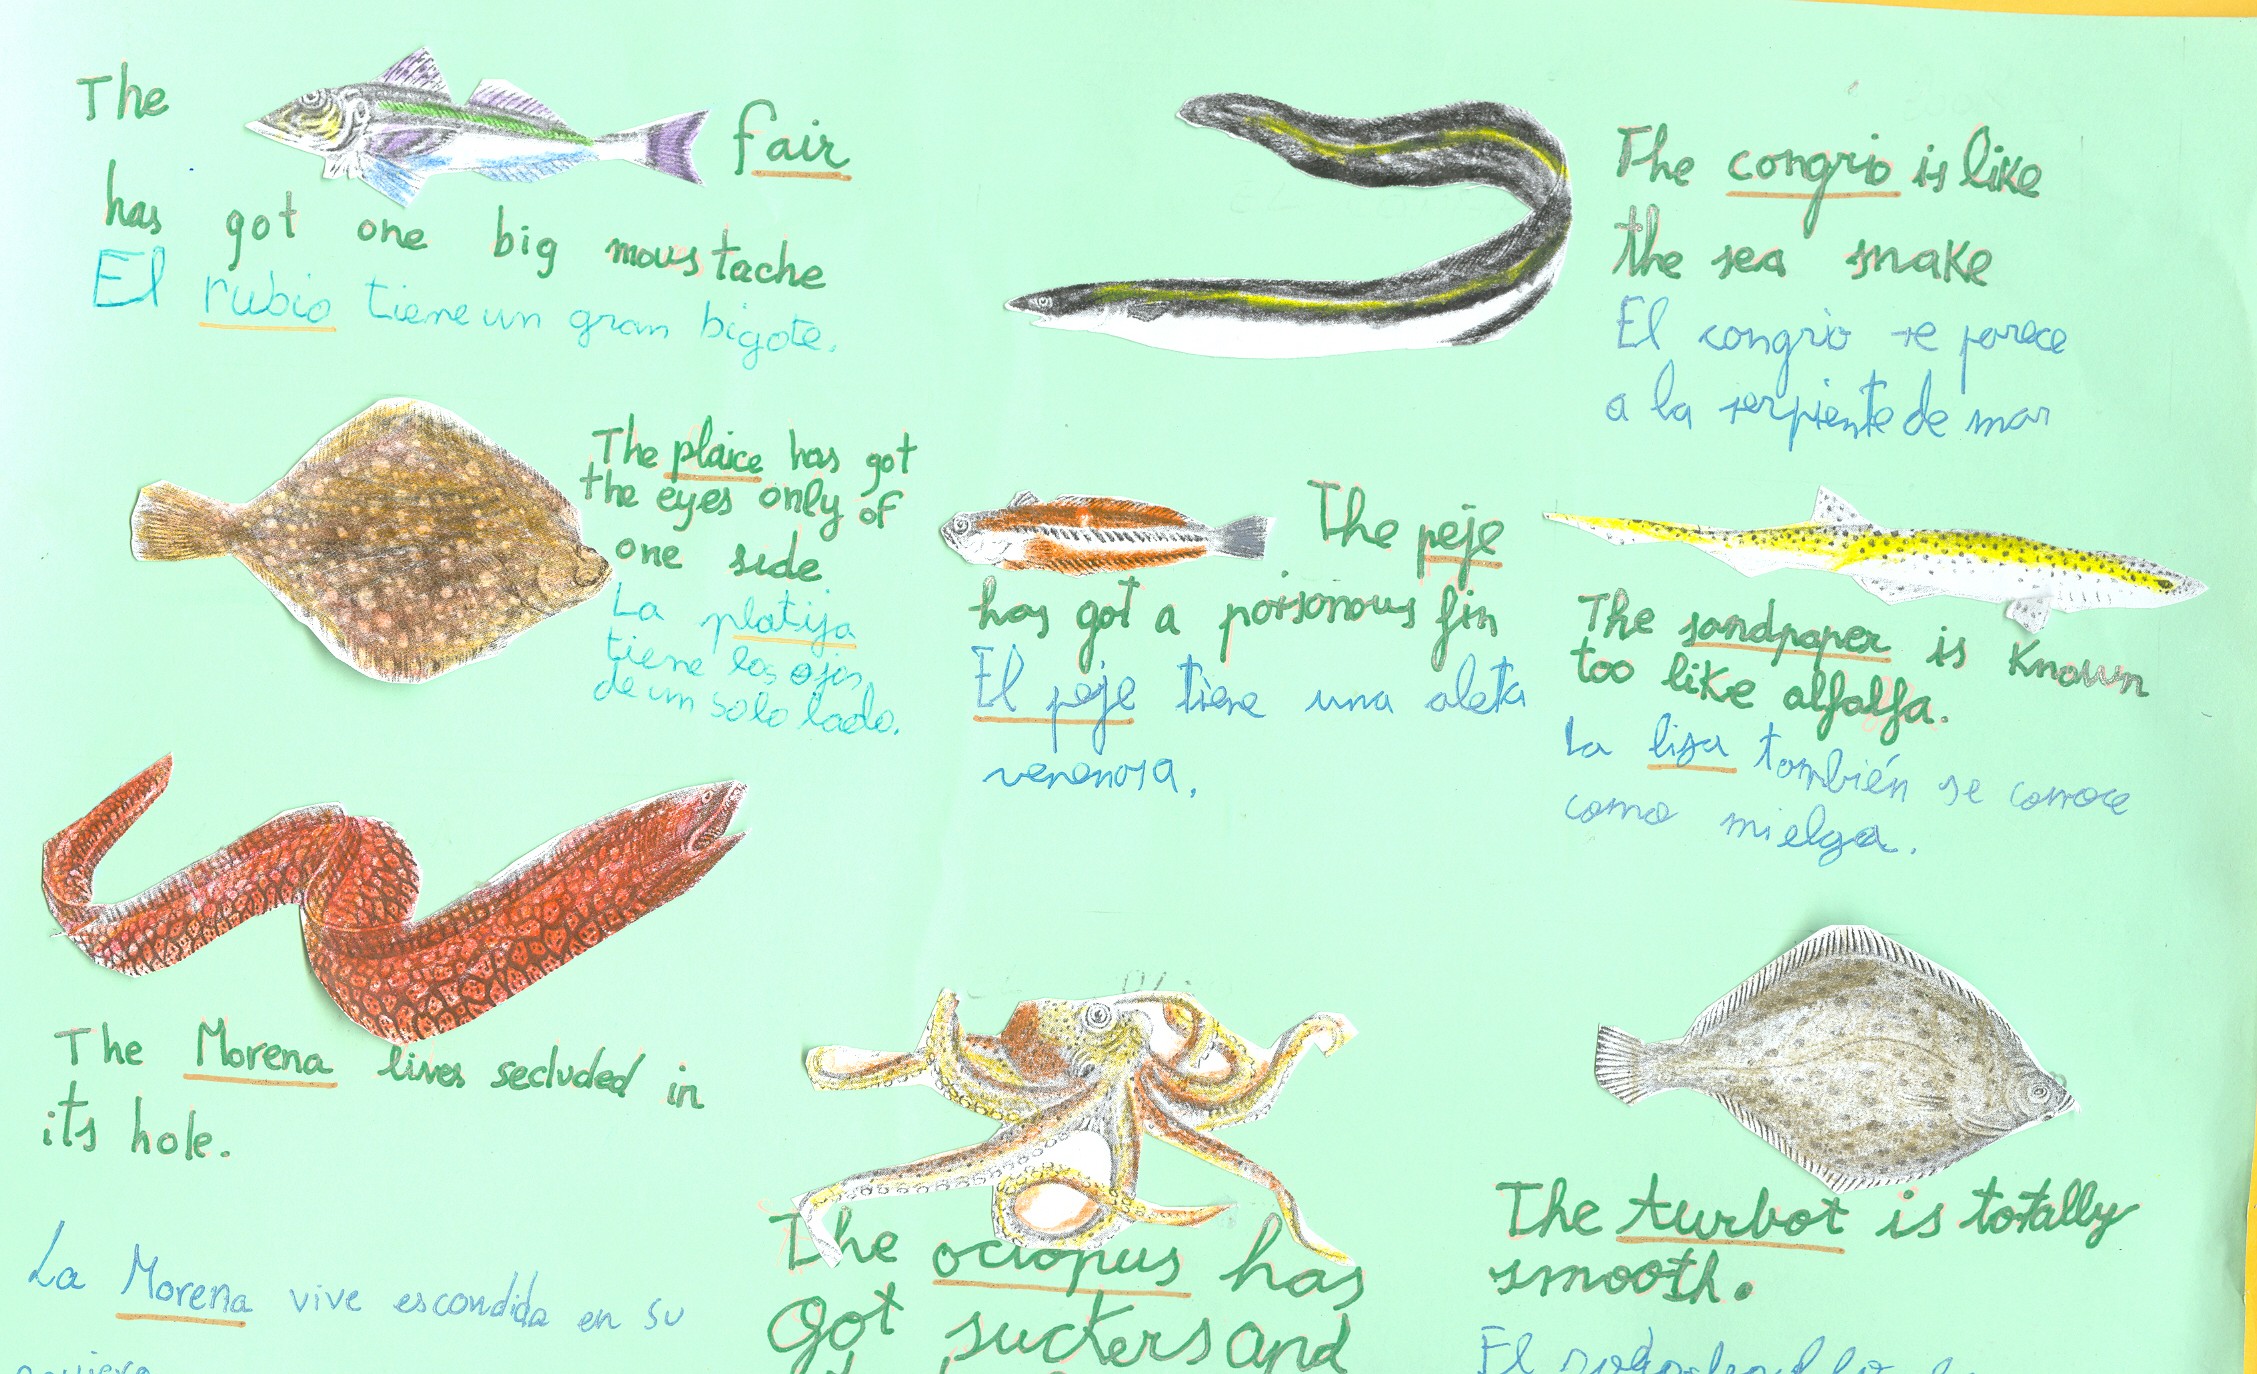 The fair
has got one big moustache
El rubio tiene un gran bigote.
The congrio is like
the sea snake
El congrio se parece
a la serpiente de mar
The plaice has got
the eyes only of
one side
La platija
tiene los ojos
de un solo lado.
The peje
has got a poisonous fin
El peje tiene una aleta
venenosa.
The sandpaper is known
too like alfalfa.
La lisa también se conoce
como mielga.
The Morena lives secluded in
its hole.
La Morena vive escondida en su
The octopus has
got suckers and
The turbot is totally
smooth.
El